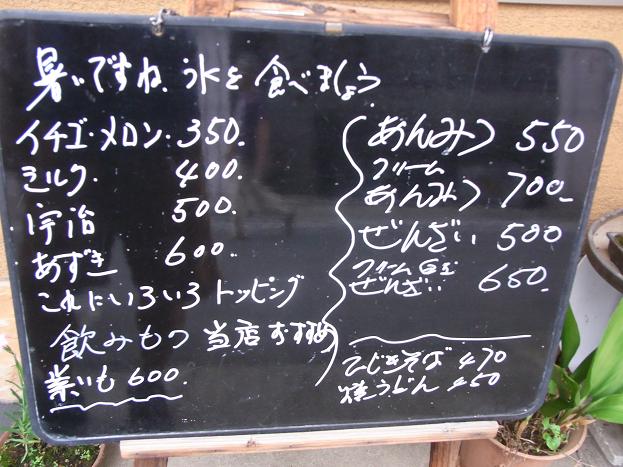 暑いですね。氷を食べましょう
イチゴ・メロン・350.
ミルク. 400.
宇治 500.
あずき 600.
これにいろいろトッピング
飲みもつ 当店おすすめ
葉いも 600.
あんみつ 550
クリーム
あんみつ 700-
ぜんざい 500
クリーム白玉
ぜんざい 650
そば 470
焼うどん 450